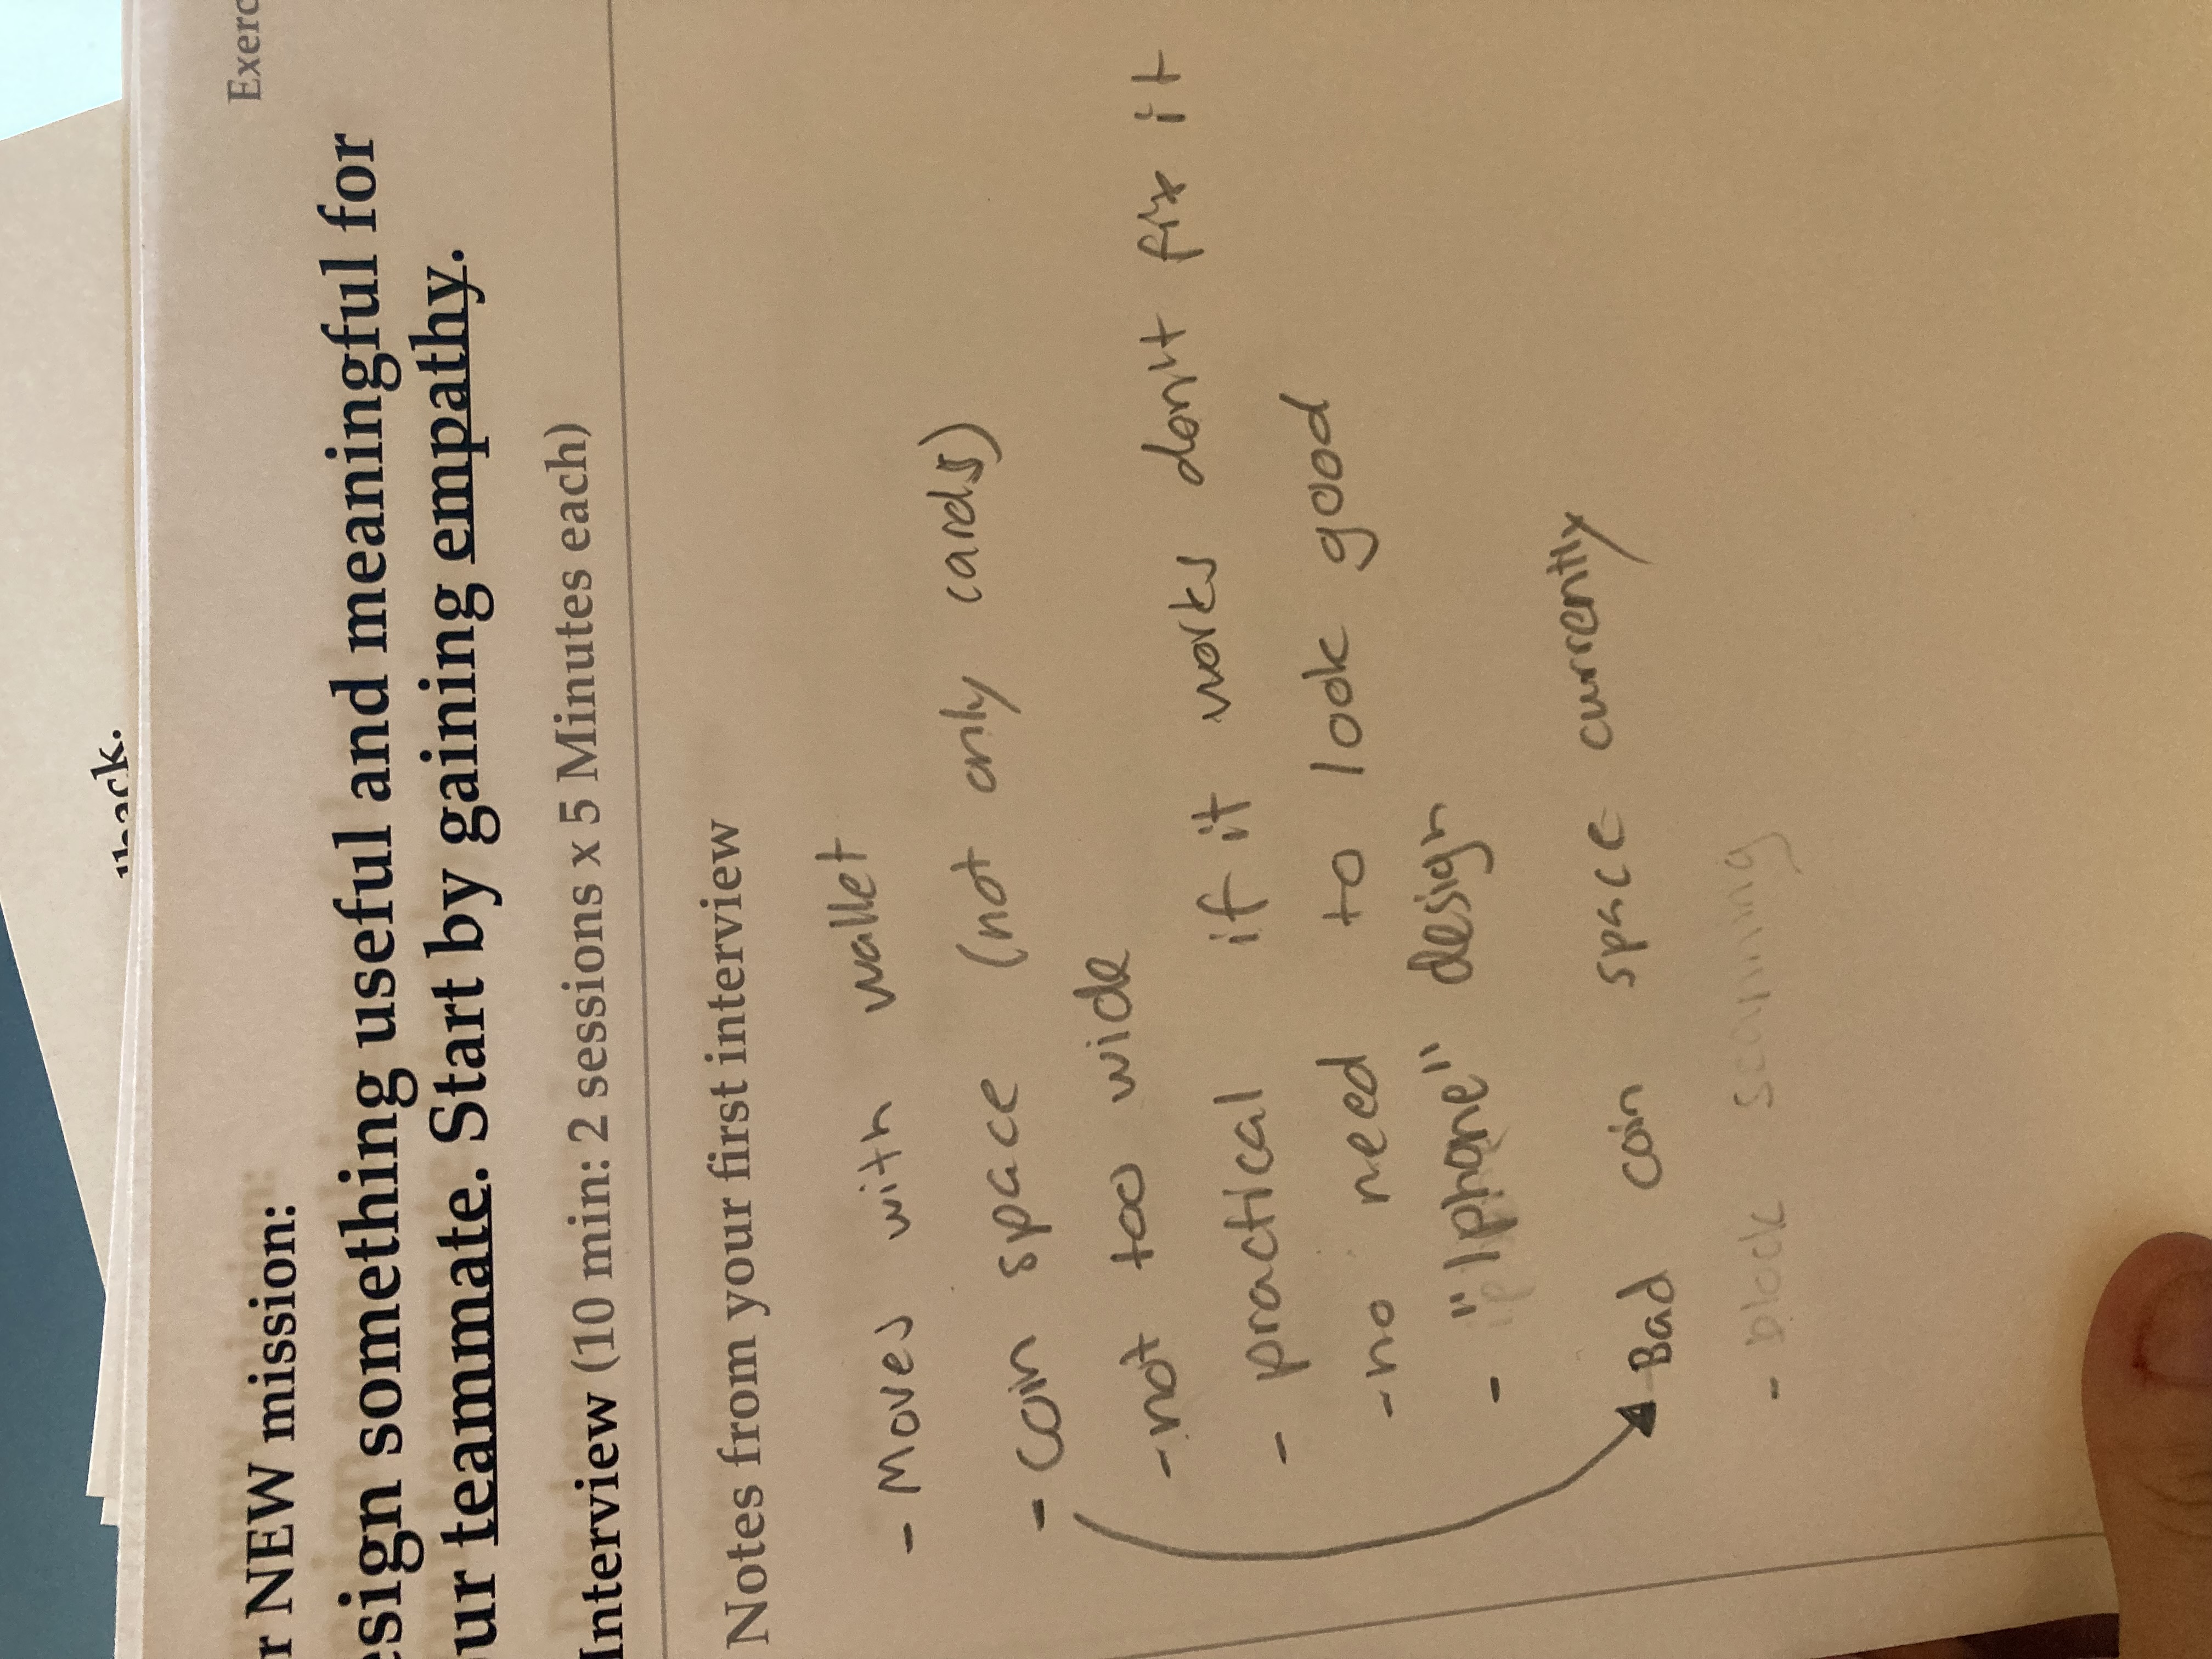 r NEW mission:
Exerc
esign something useful and meaningful for
ur teammate. Start by gaining empathy.
Interview (10 min: 2 sessions x 5 Minutes each)
Notes from your first interview
- Moves with wallet
- coin space (not only cards)
- not too wide
- practical if it works don't fix it
- no need to look good
- "Iphone" design
Bad coin space currently
- block scanning